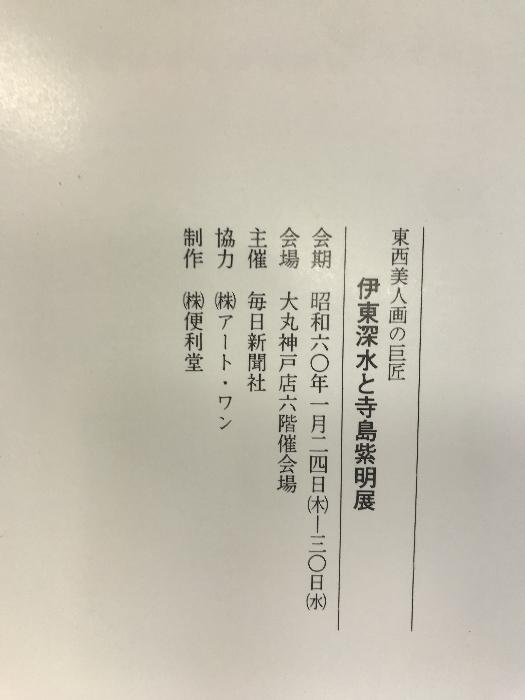 東西美人画の巨匠
伊東深水と寺島紫明展
会期 昭和六〇年一月二四日㈭―三〇日㈬
会場 大丸神戸店六階催会場
主催 毎日新聞社
協力 ㈱アート・ワン
制作 ㈱便利堂